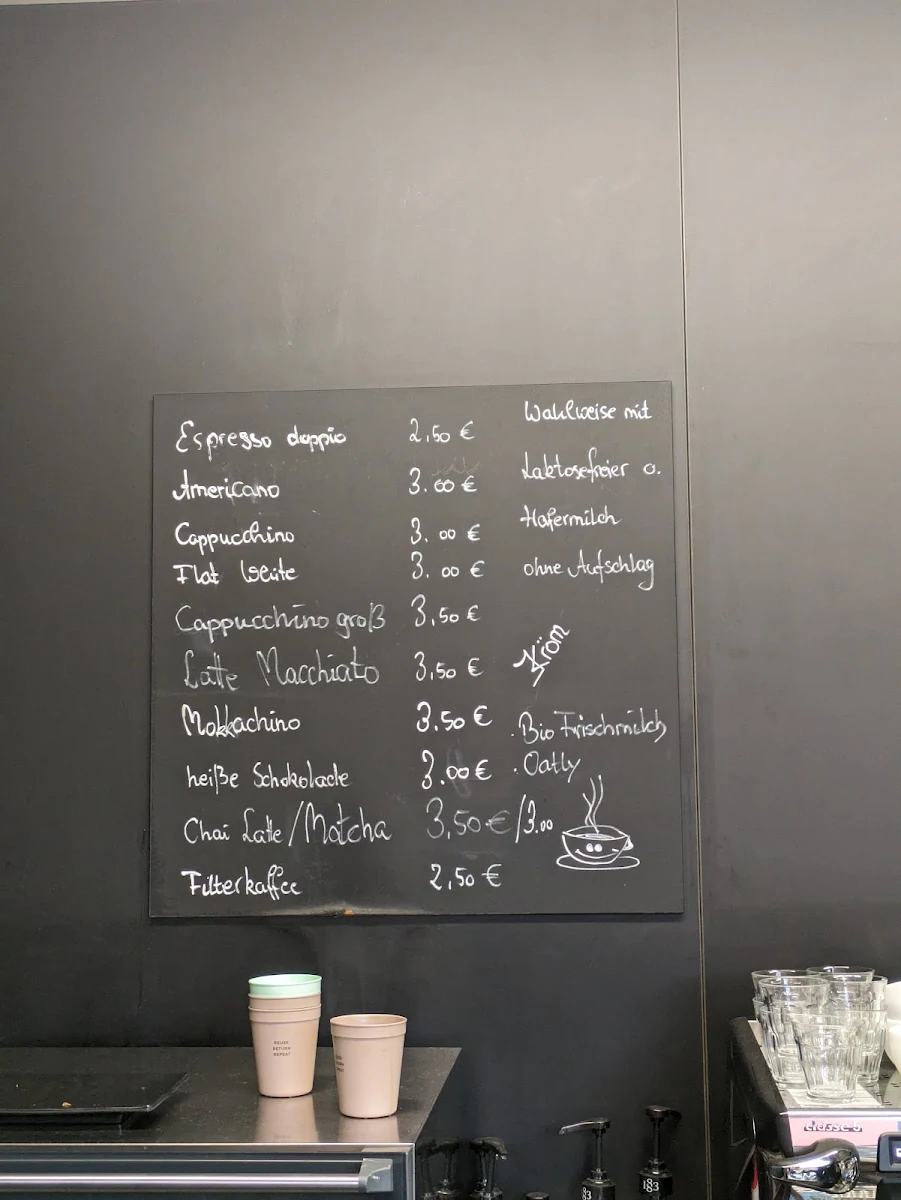 Espresso doppio 2,50 €
Americano 3.00 €
Cappucchino 3.00 €
Flat White 3.00 €
Cappucchino groß 3,50 €
Latte Macchiato 3,50 €
Mokkachino 3.50 €
heiße Schokolade 3.00 €
Chai Latte/Matcha 3,50 €/3.00
Filterkaffee 2,50 €
Wahlweise mit
Laktosefreier o.
Hafermilch
ohne Aufschlag
. Bio Frischmilch
. Oatly
REUSE
RETURN
REPEAT
classe 6
1883